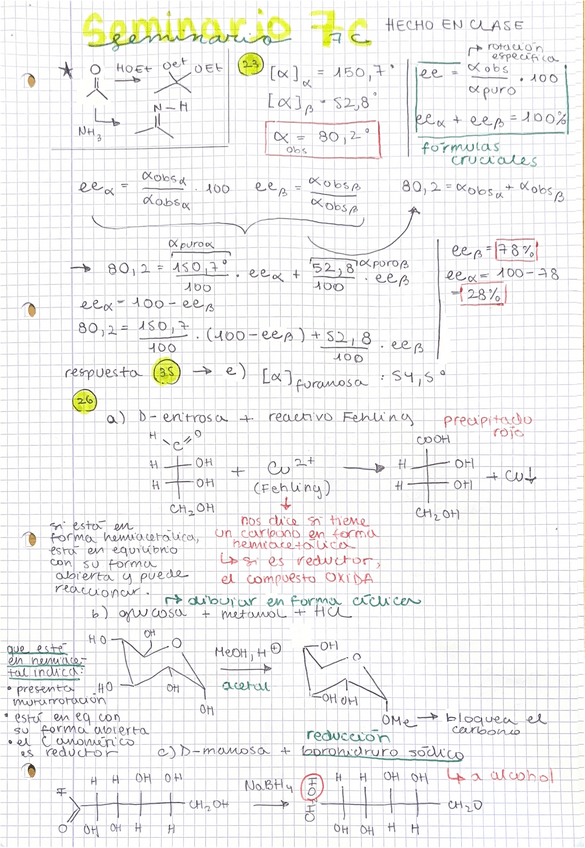 Seminario 7C HECHO EN CLASE
seminario 7C
★ HOEt OEt OEt
O
N-H
NH₃
23 [α]α = 150,7°
[α]β = 52,8°
α obs = 80,2°
rotación específica
ee = α obs / α puro · 100
eeα + eeβ = 100%
fórmulas cruciales
eeα = αobsα / αobsα · 100 eeβ = αobsβ / αobsβ 80,2 = αobsα + αobsβ
αpuroα αpuroβ
→ 80,2 = 150,7° / 100 · eeα + 52,8 / 100 · eeβ
eeα = 100 - eeβ
80,2 = 150,7 / 100 · (100 - eeβ) + 52,8 / 100 · eeβ
eeβ = 78%
eeα = 100 - 78
= 28%
respuesta 35 → e) [α] furanosa : 54,5°
26
a) D-eritrosa + reactivo Fehling precipitado rojo
H C O
H OH
H OH
CH₂OH
+ Cu²⁺
(Fehling)
COOH
H OH
H OH
CH₂OH
+ Cu↓
si está en
forma hemiacetálica,
está en equilibrio
con su forma
abierta y puede
reaccionar.
nos dice si tiene
un carbono en forma
hemiacetálica
↳ si es reductor,
el compuesto OXIDA
↳ dibujar en forma cíclica
b) glucosa + metanol + HCl
que esté
en hemiace-
tal indica:
• presenta
mutarrotación
• está en eq con
su forma abierta
• el C anomérico
es reductor
HO OH O
HO OH OH
MeOH, H⊕
acetal
OH O
OH OH OMe → bloquea el
carbono
reducción
c) D-manosa + borohidruro sódico
↳ a alcohol
H H OH OH
H O CH₂OH
OH OH H H
NaBH₄
HO H H OH OH
H CH₂O
OH OH H H